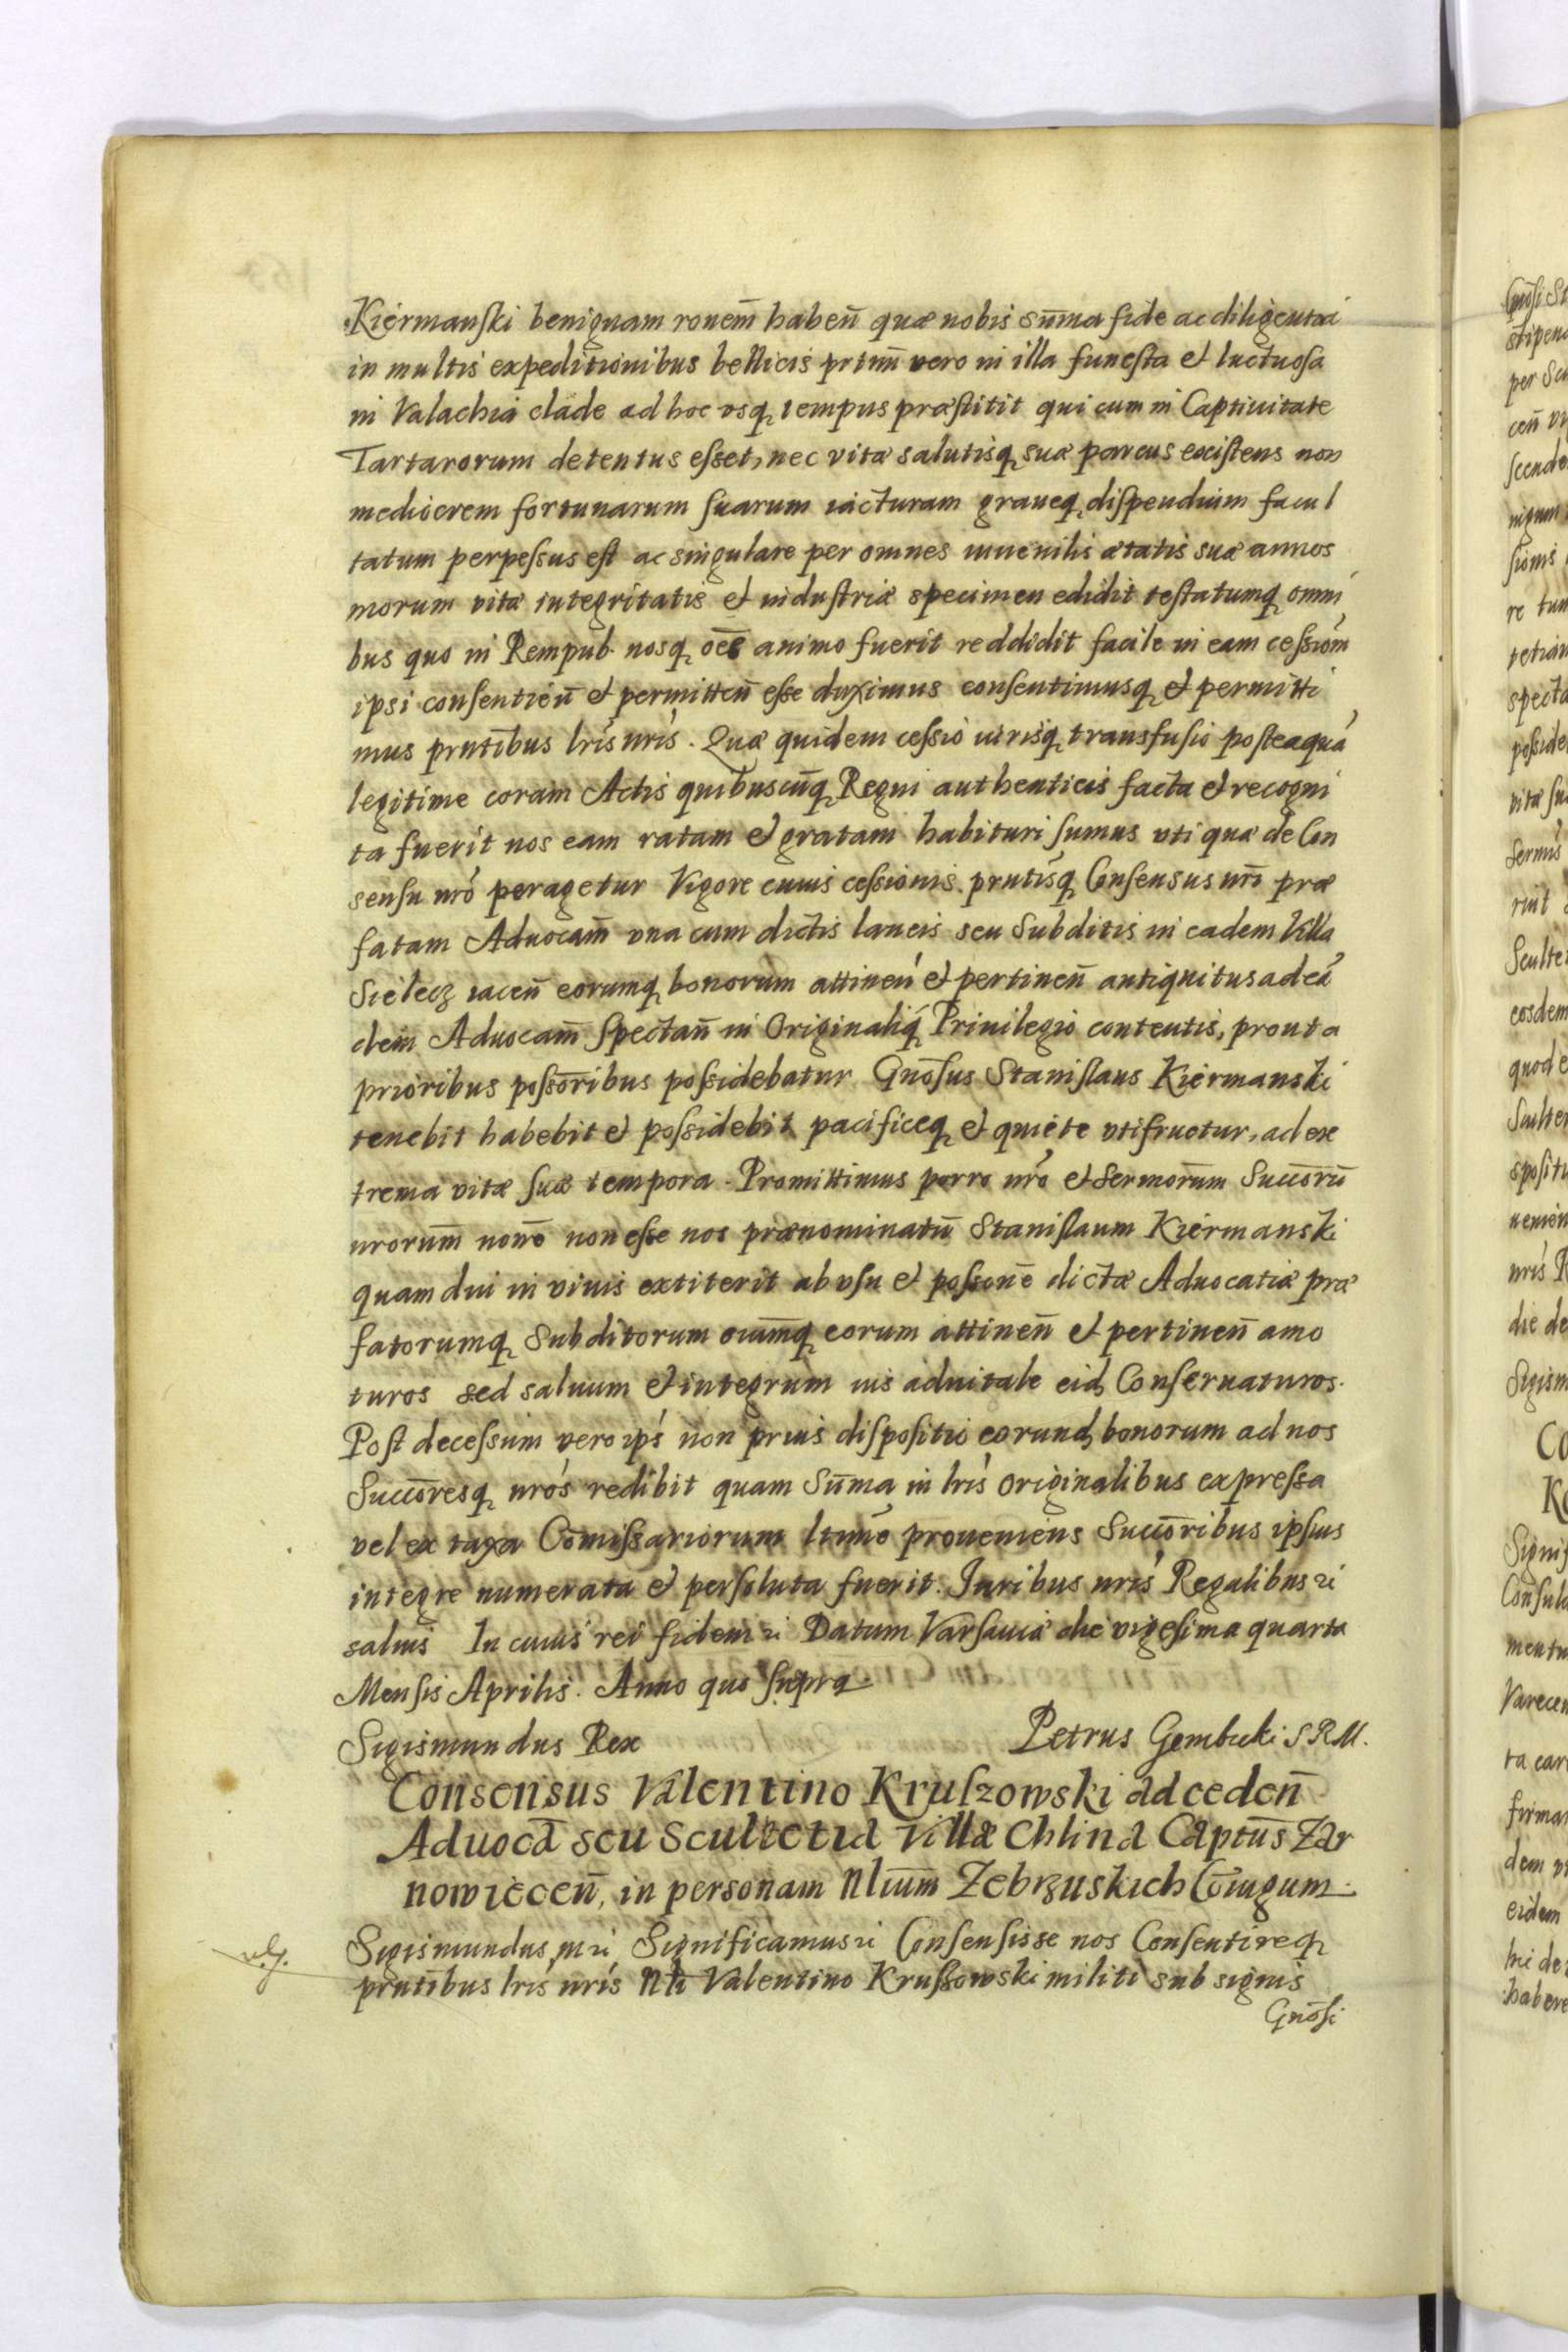 Kiermanſki benignam ronem̄ haben̄ quæ nobis sum̄a fide ac diligentia
in multis expeditionibus bellicis prtim̄ vero in illa funeſta et luctuoſa
in Valachia clade ad hoc vsq tempus præſtitit qui cum in Captiuitate
Tartarorum detentus eſset, nec vitæ salutisq suæ parcus exiſtens non
mediocrem fortunarum ſuarum iacturam graueq diſpendium facul
tatum perpeſsus eſt ac singulare per omnes iuuenilis ætatis suæ annos
morum vitæ integritatis et induſtriæ specimen edidit teſtatumq omni
bus quo in Rempub. nosq oēs animo fuerit reddidit facile in eam ceſsiom̄
ipsi conſentien̄ et permitten̄ eſse duximus conſentimusq et permitti
mus prntibus lris nris. Quæ quidem ceſsio iurisq transfuſio poſteaquā
legitime coram Actis quibuscūq Regni authenticis facta et recogni
ta fuerit nos eam ratam et gratam habituri ſumus vti quæ de Con
senſu nro peragetur Vigore cuius ceſsionis prntisq Conſensus nri præ
fatam Aduocam̄ vna cum dictis laneis seu Subditis in eadem Villa
Sielecz iacen̄ eorumq bonorum attinen̄ et pertinen̄ antiquitus ad eā
dem Aduocam̄ ſpectan̄ in Originaliq Priuilegio contentis, prout a
prioribus poſsoribus poſsidebatur Gnoſus Staniſlaus Kiermanski
tenebit habebit et poſsidebit pacificeq et quiete vtifruetur, ad ex
trema vitæ ſuæ tempora. Promittimus porro nro et Sermorum̄ Succorū
nrorum̄ nome non eſse nos prænominatū Staniſlaum Kiermanski
quam diu in viuis extiterit ab vſu et poſsone dictæ Aduocatiæ præ
fatorumq Subditorum oiumq eorum attinen̄ et pertinen̄ amo
turos sed saluum et integrum ius aduitale eid Conſeruaturos.
Poſt deceſsum vero ips non prius diſpoſitio eorund bonorum ad nos
Succoresq nros redibit quam Sum̄a in lris Originalibus expreſsa
vel ex taxa Com̄iſsariorum ltime proueniens Succoribus ipſius
integre numerata et perſoluta fuerit. Juribus nris Regalibus ꝛi
saluis In cuius rei fidem ꝛi Datum Varſauiæ die vigeſima quarta
Menſis Aprilis. Anno quo ſupra.
Sigismundus Rex Petrus Gembicki S R M.
Consensus Valentino Kruſzowski ad ceden̄
Aduocā seu Scultetiā Villæ Chlina Captus Zar
nowiecen̄, in personam Nlium̄ Zebrzuskich Coiugum.
v.g.
Sigismundus m ꝛi Significamus ꝛi Conſensisse nos Conſentireq
prntibus lris nris Nli Valentino Kruſzowski militi sub signis
Gnoſi